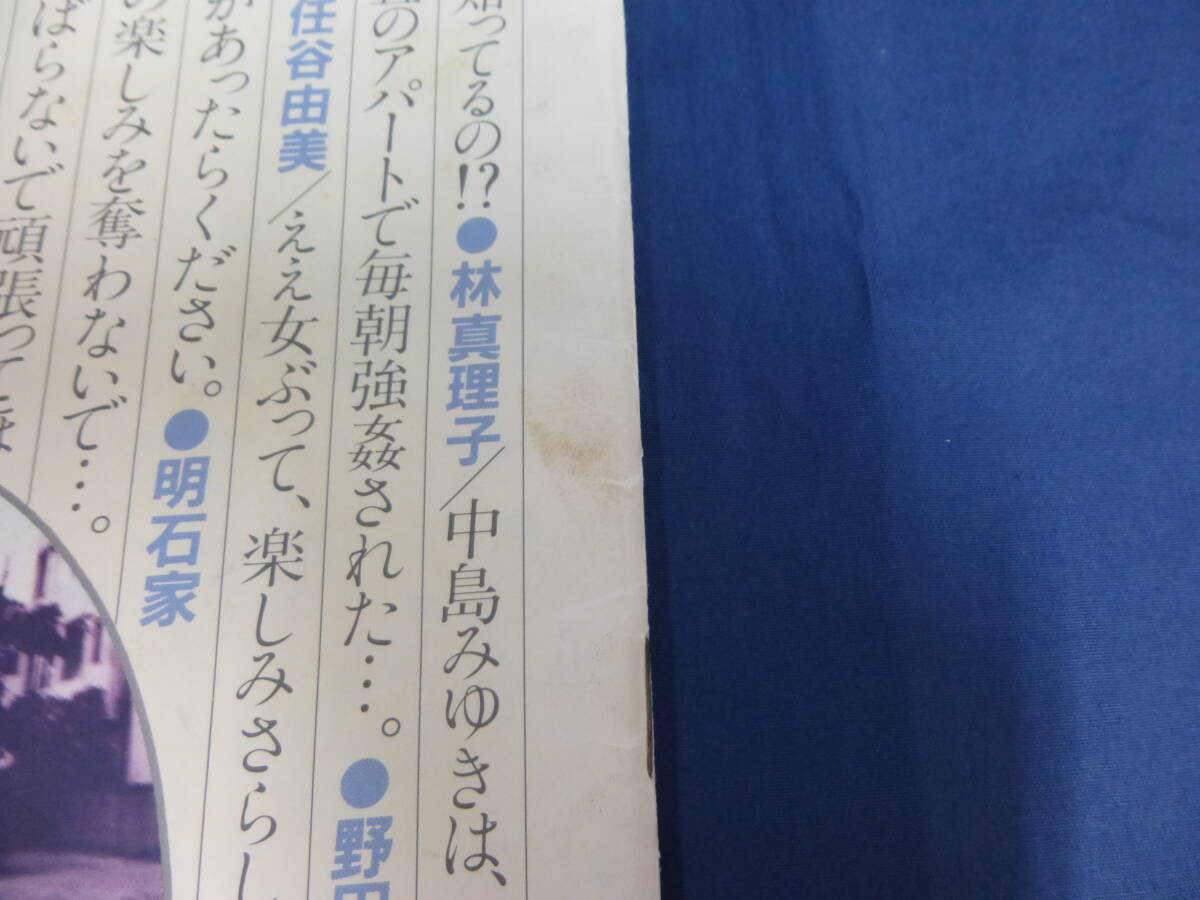 知ってるの!?●林真理子/中島みゆきは、
のアパートで毎朝強姦された…。●野田
任谷由美/ええ女ぶって、楽しみさらし
があったらください。●明石家
の楽しみを奪わないで…。
ばらないで頑張っては